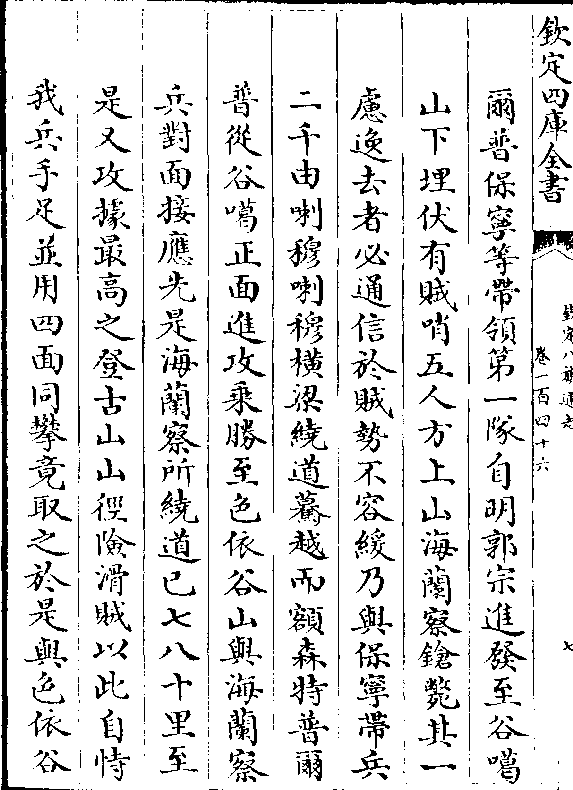 欽定四庫全書
欽定八旗通志
卷一百四十六
七
爾普保寧等帶領第一隊自明郭宗進發至谷噶
山下埋伏有賊哨五人方上山海蘭察鎗斃其一
慮逸去者必通信於賊勢不容緩乃與保寧帶兵
二千由喇穆喇穆橫梁繞道驀越而額森特普爾
普從谷噶正面進攻乘勝至色依谷山與海蘭察
兵對面接應先是海蘭察所繞道已七八十里至
是又攻據最高之登古山山徑險滑賊以此自恃
我兵手足並用四面同攀竟取之於是與色依谷